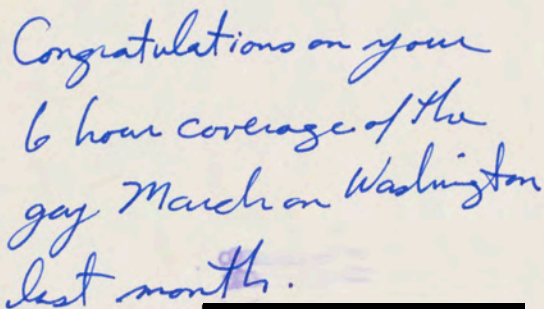 Congratulations on your
6 hour coverage of the
gay March on Washington
last month.